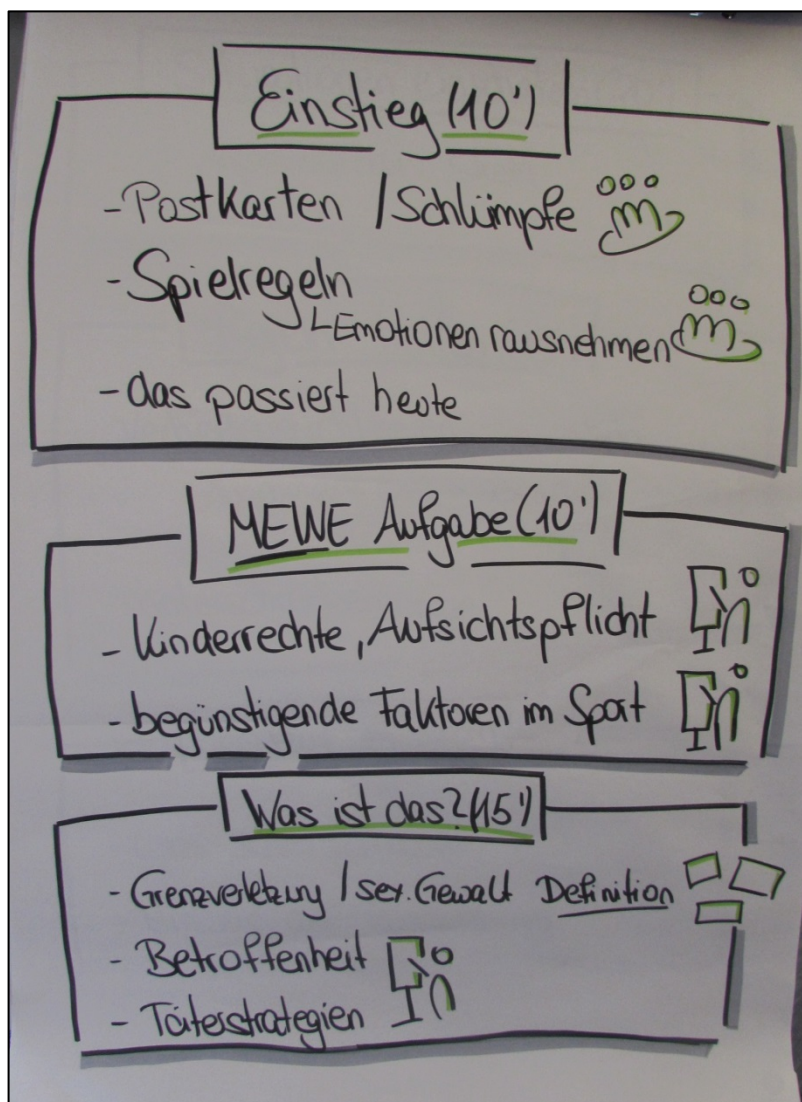 Einstieg (10')
- Postkarten / Schlümpfe
- Spielregeln
Emotionen rausnehmen
- das passiert heute
MEWE Aufgabe (10')
- Kinderrechte, Aufsichtspflicht
- begünstigende Faktoren im Sport
Was ist das? (15')
- Grenzverletzung / sex. Gewalt Definition
- Betroffenheit
- Täterstrategien